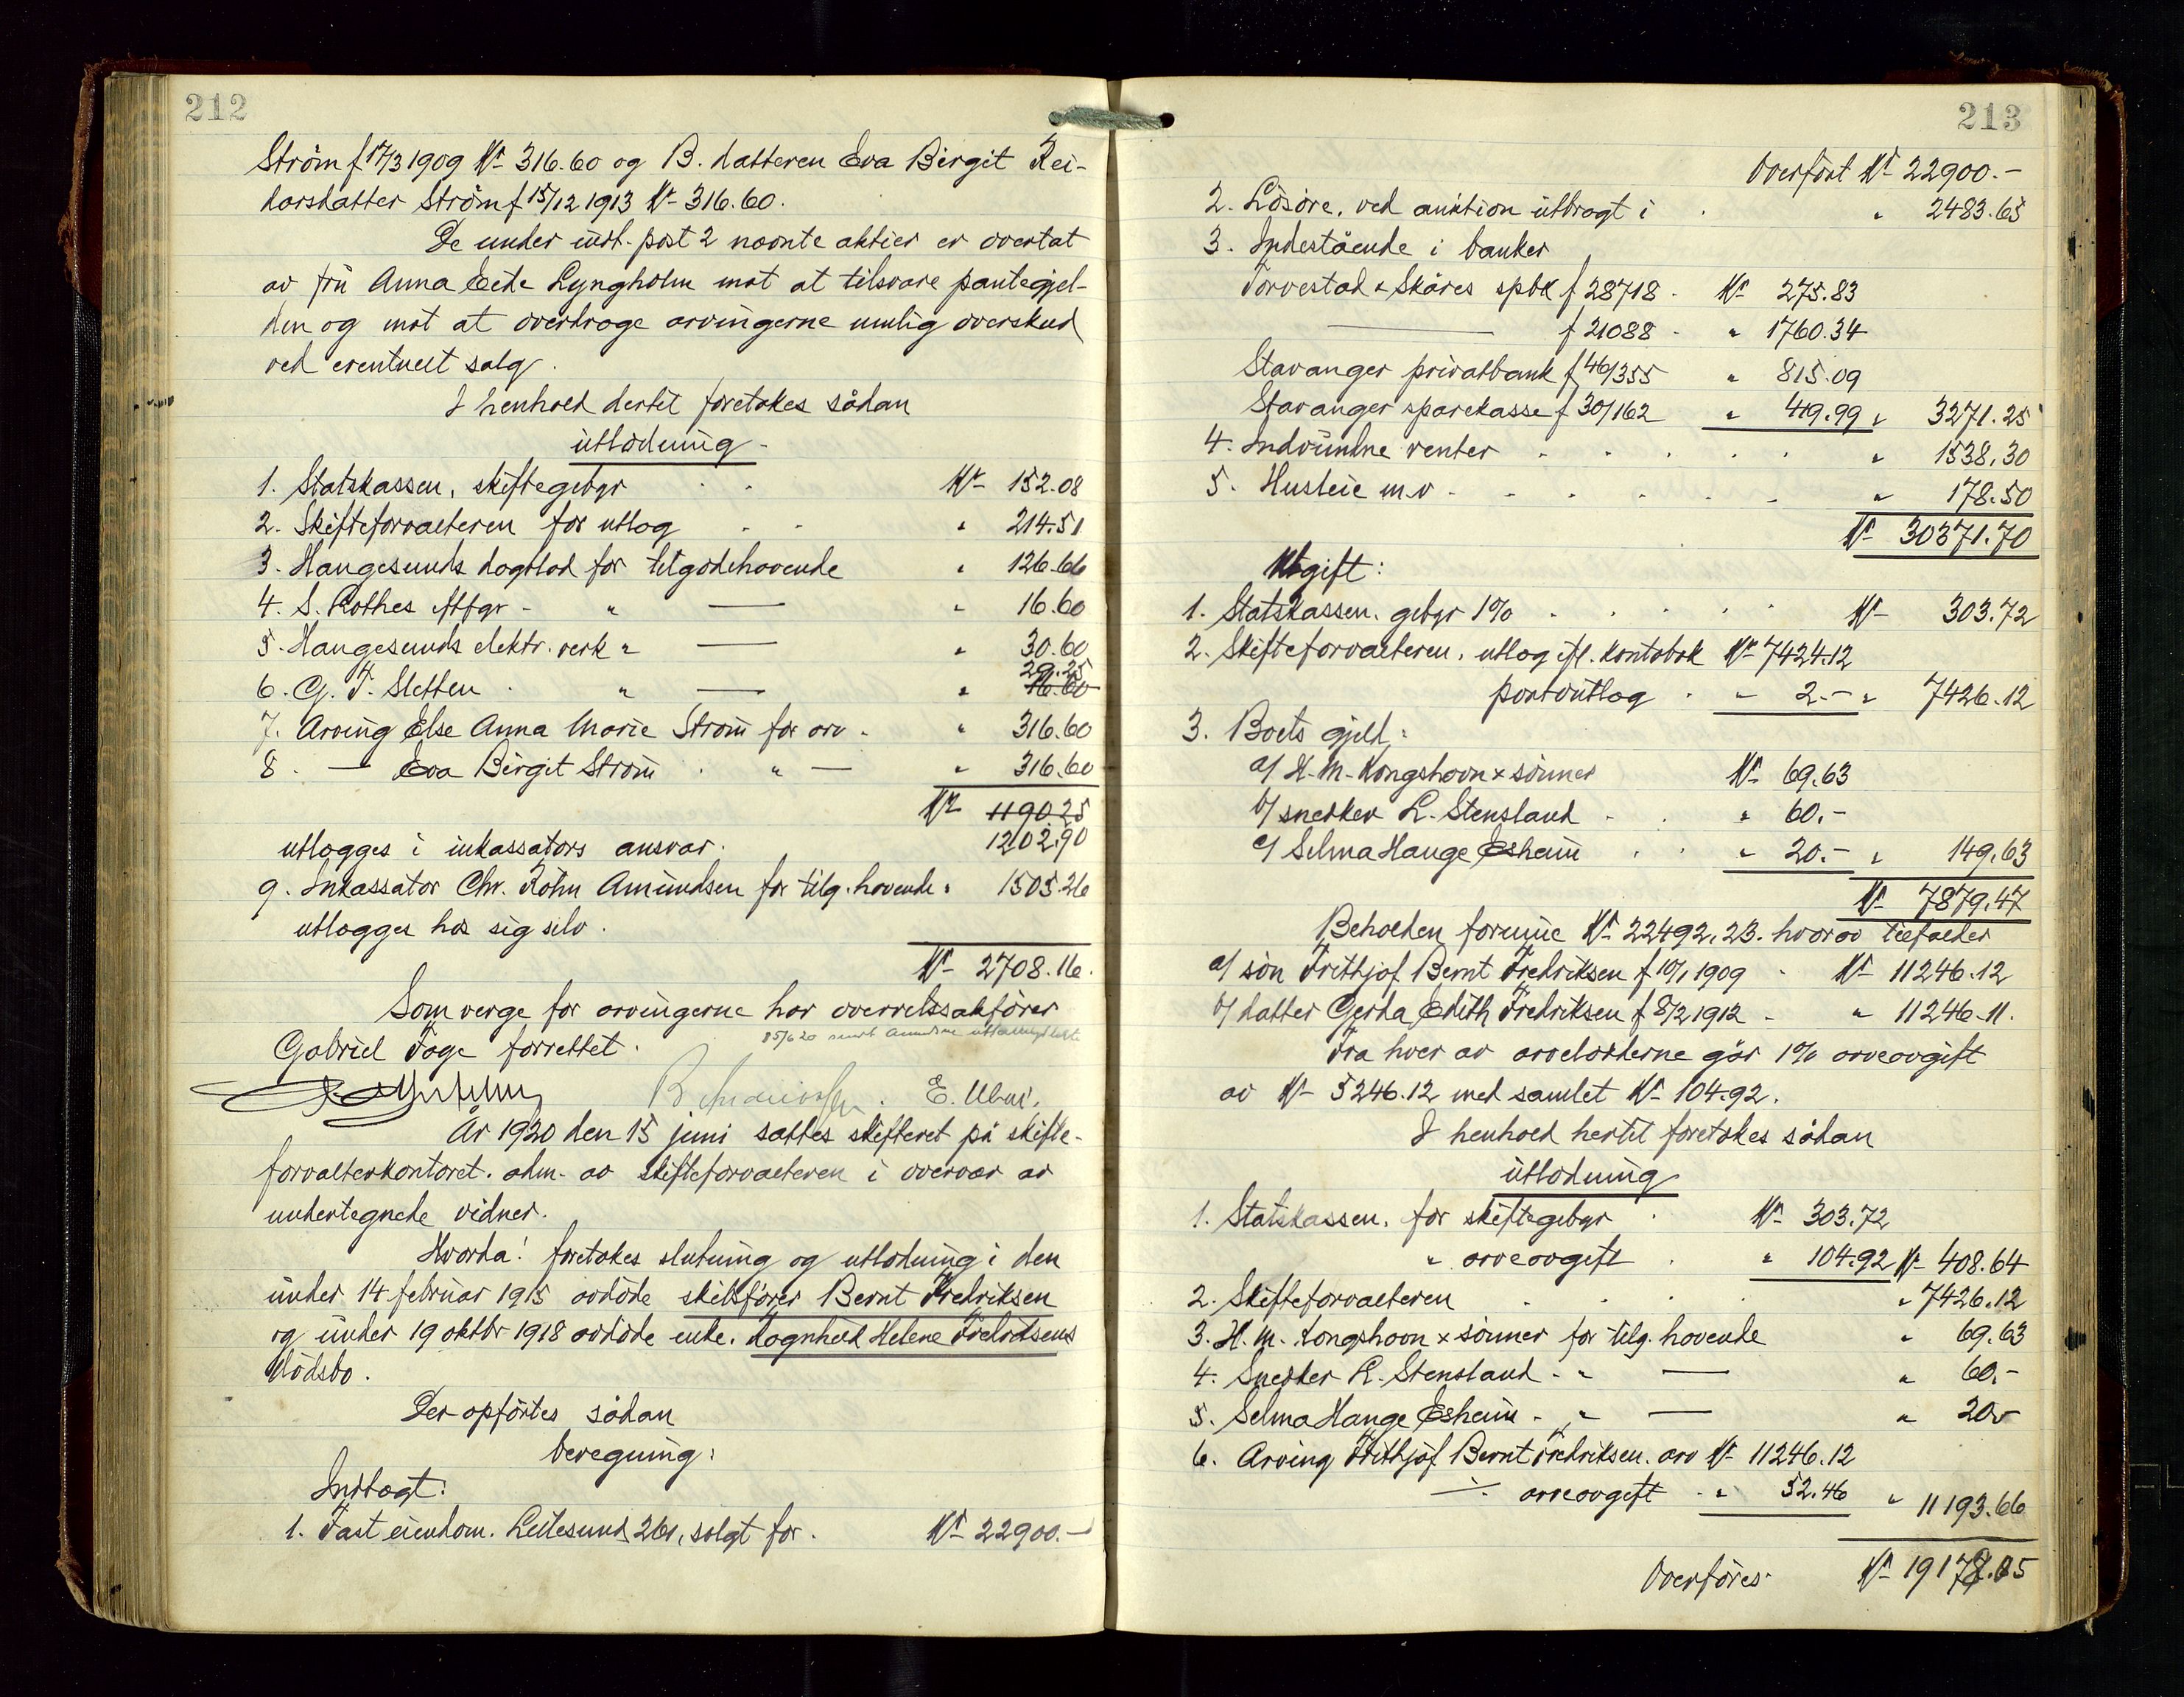 212
Ström f 17/3 1909 Kr 316.60 og B. datteren Eva Birgit Rei-
darsdatter Ström f 15/12 1913 Kr 316.60.
De under indt. post 2 nævnte aktier er overtat
av fru Anna Eide Lyngholm mot at tilsvare pantegjel-
den og mot at overdrage arvingerne mulig overskud
ved eventuelt salg.
I henhold dertil foretokes sådan
utlodning.
1. Statskassen, skiftegebyr Kr 152.08
2. Skifteforvalteren for utlæg " 214.51
3. Haugesunds dagblad for tilgodehavende " 126.66
4. S. Rothes eftfgr - " — " 16.60
5. Haugesunds elektr. verk " — " 30.60
29.25
6. G. T. Sletten " — " 16.60
7. Arving Else Anna Marie Ström for arv " 316.60
8. — Eva Birgit Ström " — " 316.60
Kr 1190.25
utlægges i inkassators ansvar. 1202.90
9. Inkassator Chr. Röhn Amundsen for tilg. havende " 1505.26
utlægges hos sig selv.
Kr 2708.16.
Som verge for arvingerne har overretssakförer
Gabriel Tage forrettet.
E. Ulvei.
År 1920 den 15 juni sattes skifteret på skifte-
forvalterkontoret. adm. av skifteforvalteren i overvær av
undertegnede vidner.
Hvorda! foretokes slutning og utlodning i den
under 14 februar 1915 avdöde skibsförer Bernt Fredriksen
og under 19 oktbr 1918 avdöde enke. Ragnhild Helene Fredriksens
dödsbo.
Der opförtes sådan
beregning:
Indtægt:
1. Fast eiendom. Lillesund 261, solgt for. Kr 22900.-
213
Overfört Kr 22900.-
2. Lösöre, ved auktion utbragt i " 2483.65
3. Indestående i banker
Torvestad & Skåres spbk f 28718 - Kr 275.83
— f 21088 - " 1760.34
Stavanger privatbank f 46/355 " 815.09
Stavanger sparekasse f 30/162 " 419.99 " 3271.25
4. Indvundne renter " 1538.30
5. Husleie m.v. " 178.50
Kr 30371.70
Utgift:
1. Statskassen. gebyr 1% Kr 303.72
2. Skifteforvalteren. utlæg ifl. kontobok Kr 7424.12
portoutlæg " 2.- " 7426.12
3. Boets gjeld:
a/ H. M. Kongshavn & sönner Kr 69.63
b/ snekker L. Stensland " 60.-
c/ Selma Hauge Esheim " 20.- " 149.63
Kr 7879.47
Beholden formue Kr 22492.23. hvorav tilfalder
a/ sön Frithjof Bernt Fredriksen f 10/1 1909 - Kr 11246.12
b/ datter Gerda Edith Fredriksen f 8/2 1912 - " 11246.11.
Fra hver av arvelodderne går 1% arveavgift
av Kr 5246.12 med samlet Kr 104.92.
I henhold hertil foretokes sådan
utlodning
1. Statskassen, for skiftegebyr Kr 303.72
" arveavgift " 104.92 Kr 408.64
2. Skifteforvalteren " 7426.12
3. H. M. Kongshavn & sönner for tilg. havende " 69.63
4. Snekker L. Stensland - " — " 60.-
5. Selma Hauge Esheim - " — " 20.-
6. Arving Frithjof Bernt Fredriksen. arv Kr 11246.12
÷ arveavgift " 52.46 " 11193.66
Overföres Kr 19178.05